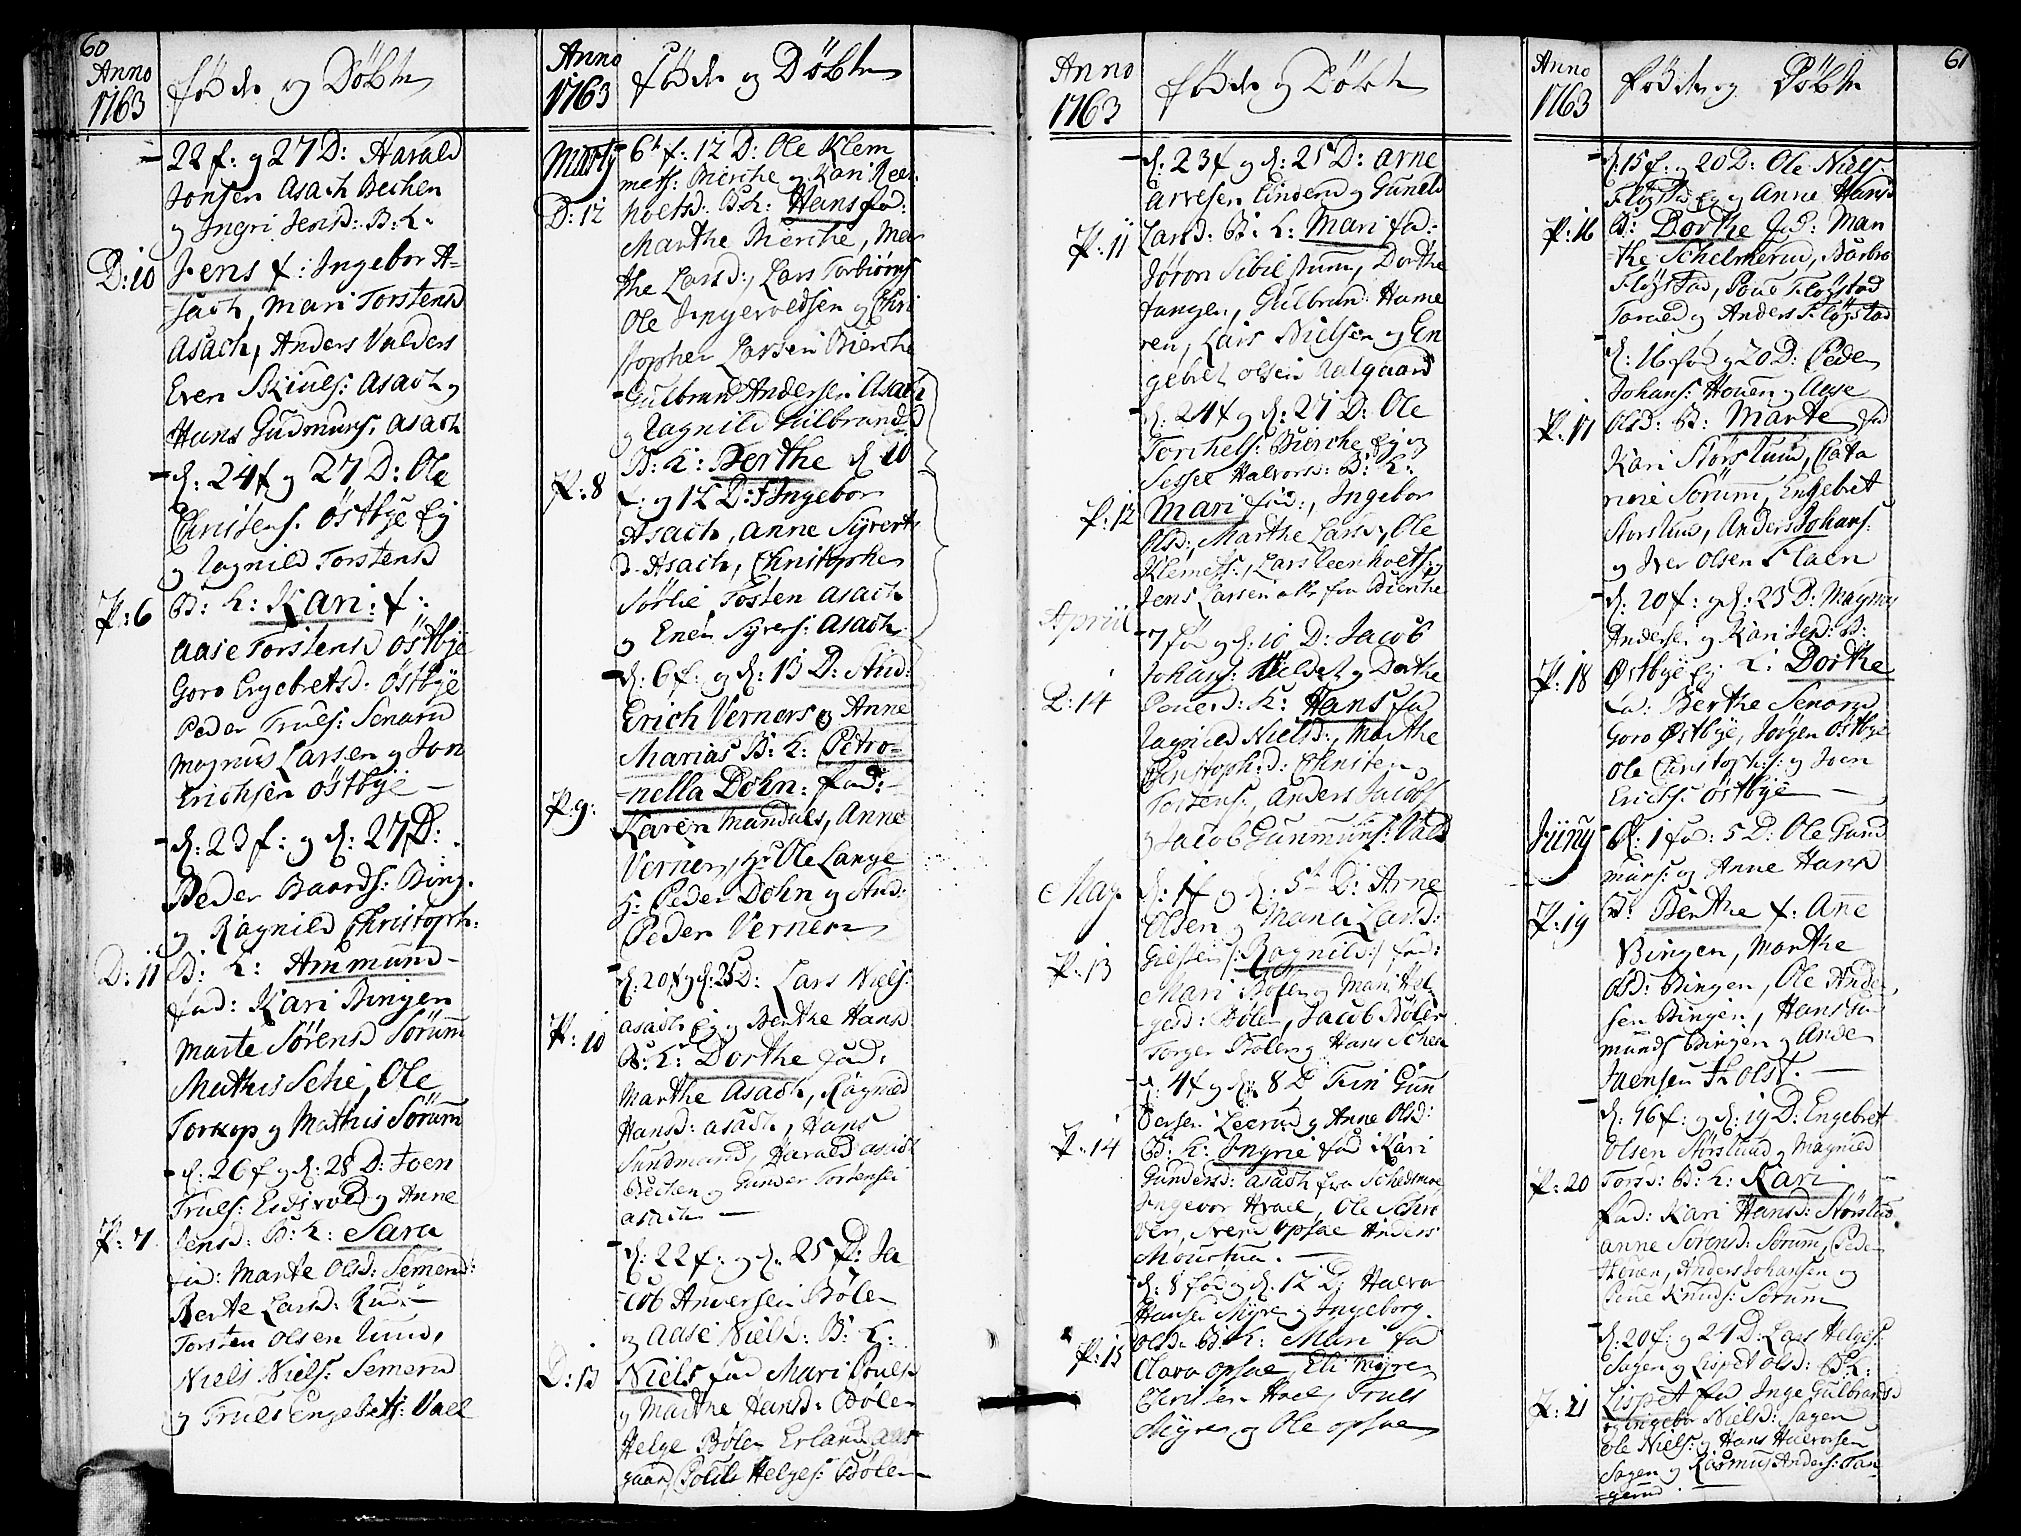 60
Anno
1763
fødte og Døbte
22 f: og 27 D: Harald
Jonsen Asach Bechen
og Ingri Jensd: B: K:
D: 10
Jens f: Ingebor A-
sach, Mari Torstensd
Asach, Anders Valders
Even Skiuels: Asach og
Hans Gudmuns: Asach
d: 24 f og 27 D: Ole
Christens: Østbye Ej
og Ragnild Torstensd
P: 6
B: K: Kari: f:
Aase Torstensd Østbye
Goro Engebretsd: Østbye
Peder Truls: Semerud
Magnus Larsen og Jon
Erichsen Østbye
d: 23 f: og d: 27 D:
Peder Baards: Bing.
og Ragnild Christoph:
D: 11
B: K: Ammund
fad: Kari Bingen
Marte Sørensd Sørum
Mathis Schie, Ole
Torkop og Mathis Sørum
d: 26 f og d: 28 D: Joen
Truls: Eidsvold og Anne
P: 7
Jensd: B: K: Sara
fad: Marte Olsd: Semerud:
Berte Larsd: Rud:
Torsten Olsen Rund,
Niels Niels: Semerud
og Truls Engebrets: Vael
Anno
1763
fødte og Døbte
Marty
6t f: 12 D: Ole Klem
mets: Bierche og Kari Reer
D: 12
holtsd: B:K: Hans fad:
Marthe Bierche, Mar
the Larsd:, Lars Torbiørns
Ole Ingevoldsen og Chri
stopher Larsen Bierche
Gulbrand Andersen Asach
og Ragnild Gulbrandsd
P: 8
B: K: Berthe d 10
f: og 12 D: f Ingebor
Asach, Anne Syverts
d. Asach, Christopher
Sørlie, Tosten Asach
og Enen Syvers: Asach
d: 6 f: og d: 13 D: Aud:
Erich Verners og Anne
Marias B: K: Petro-
P: 9:
nella Dohn: fad:
Karen Mandals, Anne
Verner, Hr Ole Lange
Hr Peder Dohn og Aud:
Peder Verner
d: 20 f og d: 25 D: Lars Niels:
Asach Ej og Berthe Hansd
P: 10
B: K: Dorthe fad:
Marthe Asach, Ragnild
Hansd: Asach, Hans
Sundmand, Harald Asach
Bechen og Gunder Torstensen
Asach
d: 22 f: og d. 25 D: Ja
cob Andersen Bølen
og Aase Nielsd: B: K:
D: 13
Niels fad Mari Poulsd
og Marthe Hansd: Bølen
Helge Bølen Erland Aas
gaar, Poul Helges: Bølen
Anno
1763
fødte og Døbte
d: 23 f og d: 25 D: Arne
Arvesen Linderud og Guneld
P: 11
Larsd: B: K: Mari fad:
Jøron Sibilstuun, Dorthe
Tangen, Gulbrand Hame
ren, Lars Nielsen og En
gebret Olsen Aalgaard
d: 24 f og d: 27 D: Ole
Torchels: Bierche Ej og
Sessel Halvorsd: B: K:
P: 12
Mari fad:, Ingebor
Olsd:, Marthe Larsd, Ole
Klemets:, Lars Reerholts: og
Jens Larsen alle fra Bierche
April
7 fød og d: 10 D: Jacob
Johans: Kuldet og Dorthe
D: 14
Povelsd: K: Hans fad
Ragnild Nielsd:, Marthe
Christophd: Christen
Torstens:, Anders Jacobs
og Jacob Gunmuns: Vald
May
d: 1 f og d: 5t D: Arne
Olsen og Maria Larsd:
P: 13
Gielsten /: Ragnild :/ fad:
Mari Bølen og Mari Hel
gesd: Bølen, Jacob Bølen
Torger Bølen og Hans Schea
d: 4 f og d: 8 D Finn Gun
dersen Leerud og Anne Olsd:
P: 14
B: K: Ingrie fad Kari
Gundersd: Asach fra Schedsmoe,
Ingebor Hvael, Ole Schri
ver, Svend Opsae Anders
Moustua.
d: 8 fød og d: 12 D: Halvor
Hansen Myren og Ingeborg
P: 15
Olsd: B: K: Mari fad
Clara Opsae, Eli Myren
Christen Hvael, Truls
Myren og Ole Opsae
61
Anno
1763
Fødte og Døbte
d. 15 f: og 20 D: Ole Niels
Fløgstad Ej og Anne Hansd
P: 16
B: Dorthe fad: Mar
the Schelmerud, Barbro
Fløgstad, Poul Fløgstad
Torvald og Anders Fløgstad
d: 16 fød og 20 D: Peder
Johans: Hoven og Aase
P: 17
Olsd: B: Marte fad
Kari Størslund, Cata
rine Sørum, Engebret
Storslund, Anders Johans:
og Iver Olsen Flaen
d: 20 f: og d: 23 D: Magnus
Andersen og Kari Jensd: B:
P: 18
Østbye Ej K: Dorthe
fad: Berthe Semerud
Goro Østbye, Jørgen Østbye
Ole Christophs: og Joen
Erichs: Østbye
Juny
d: 1 fød: 5 D: Ole Gund
muns: og Anne Hansd
P: 19
B: Berthe f: Ane
Bingen, Marthe
Olsd: Bingen, Ole Ander
sen Bingen, Hans Gu
munds Bingen og Ander
Joensen Holst.
d. 16 f: og d: 19 D: Engebret
Olsen Størslund og Magnild
P: 20
Torsd: B: K: Kari
fad: Kari Hansd: Størslund
Anne Sorensd: Sørum, Peder
Hoven, Anders Johansen og
Poul Knuds: Sørum
d: 20 f: og 24 D: Lars Helges:
Sagen og Lispet Olsd: B: K:
P: 21
Lispet fad Inge Gulbrandsd
og Ingebor Nielsd: Sagen
Ole Niels: og Hans Halvorsen
Sagen og Rasmus Anders: Tan-
gerud